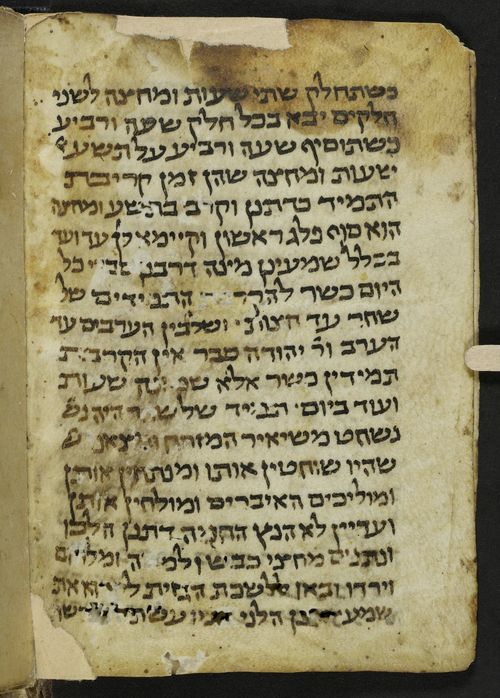 כשתחלק שתי שעות ומחצה לשני
חלקים יבא בכל חלק שעה ורביע
כשתוסיף שעה ורביע על תשע
שעות ומחצה שהן זמן קריבת
התמיד כדתנן וקרב בתשע ומחצה
הוא סוף פלג ראשון וקיימא לן עד ועד
בכלל שמעינן מינה דרבנן כל
היום כשר של
שחר עד ושלבין הערבים עד
הערב ור יהודה סבר אין הקרבת
תמידין כשר אלא שעות
ועוד ביום של שחר היה
נשחט משיאיר המזרח
שהיו שוחטין אותו ומנתחין אותן
ומוליכים האיברים ומולחין אותן
ועדיין לא הנץ החמה דתנן הלכו
ונתנום מחצי כבש ולמטה ומלחום
וירדו ובאו ללשכת הגזית לקרוא את
שמע הלני